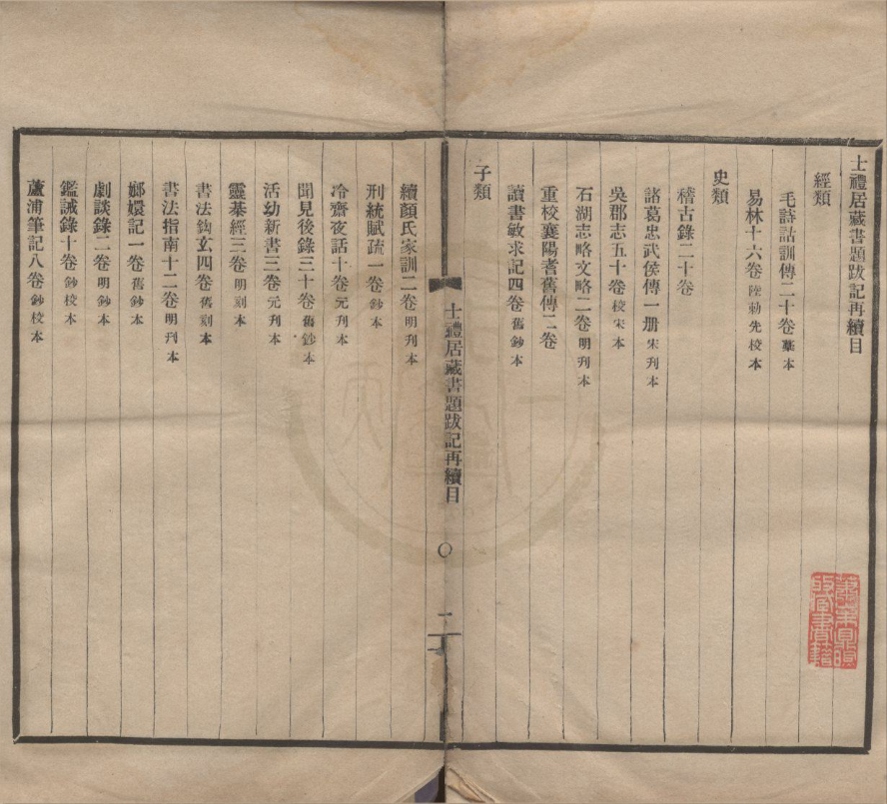 士禮居藏書題跋記再續目
經類
毛詩詁訓傳二十卷 藁本
易林十六卷 陸勅先校本
史類
稽古錄二十卷
諸葛忠武侯傳一册 宋刊本
吳郡志五十卷 校宋本
石湖志略文略二卷 明刊本
重校襄陽耆舊傳二卷
讀書敏求記四卷 舊鈔本
子類
士禮居藏書題跋記再續目 一
續顏氏家訓二卷 明刊本
刑統賦疏一卷 鈔本
冷齋夜話十卷 元刊本
聞見後錄三十卷 舊鈔本
活幼新書三卷 元刊本
靈棊經三卷 明刻本
書法鈎玄四卷 舊刻本
書法指南十二卷 明刊本
嫏嬛記一卷 舊鈔本
劇談錄二卷 明鈔本
鑑誡錄十卷 鈔校本
蘆浦筆記八卷 鈔校本